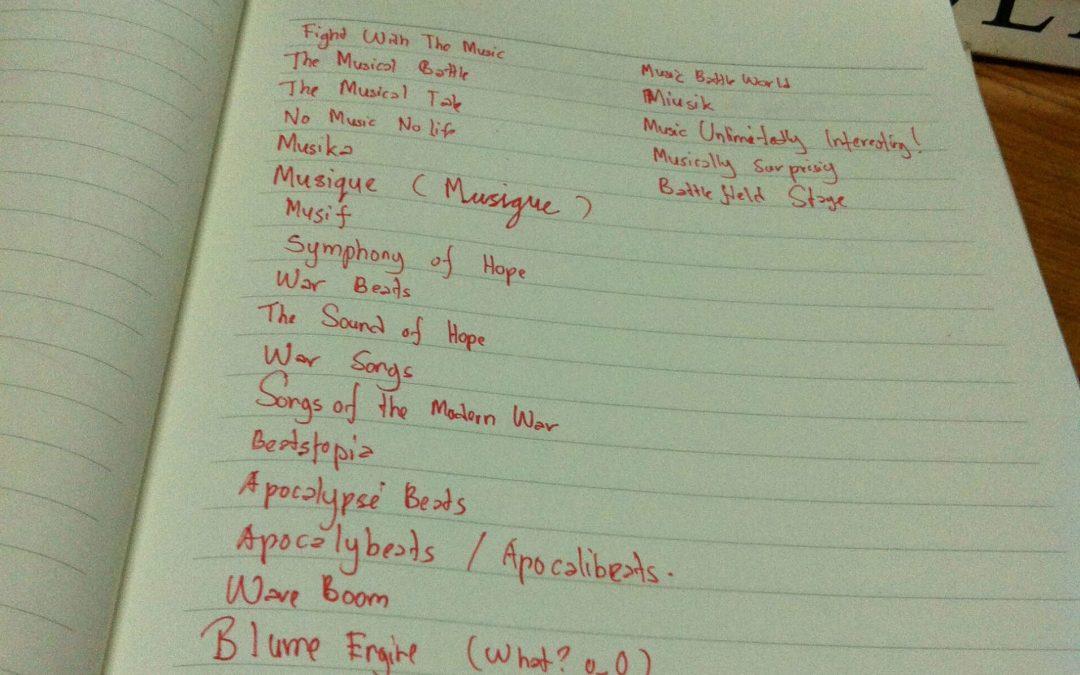 Fight With The Music
The Musical Battle
The Musical Tale
No Music No life
Musika
Musique (Musique)
Musif
Symphony of Hope
War Beats
The Sound of Hope
War Songs
Songs of the Modern War
Beatstopia
Apocalypse Beats
Apocalybeats / Apocalibeats.
Wave Boom
Blume Engine (What? o_O)
Music Battle World
Miusik
Music Unlimitedly Interesting!
Musically surprisig
Battle field Stage